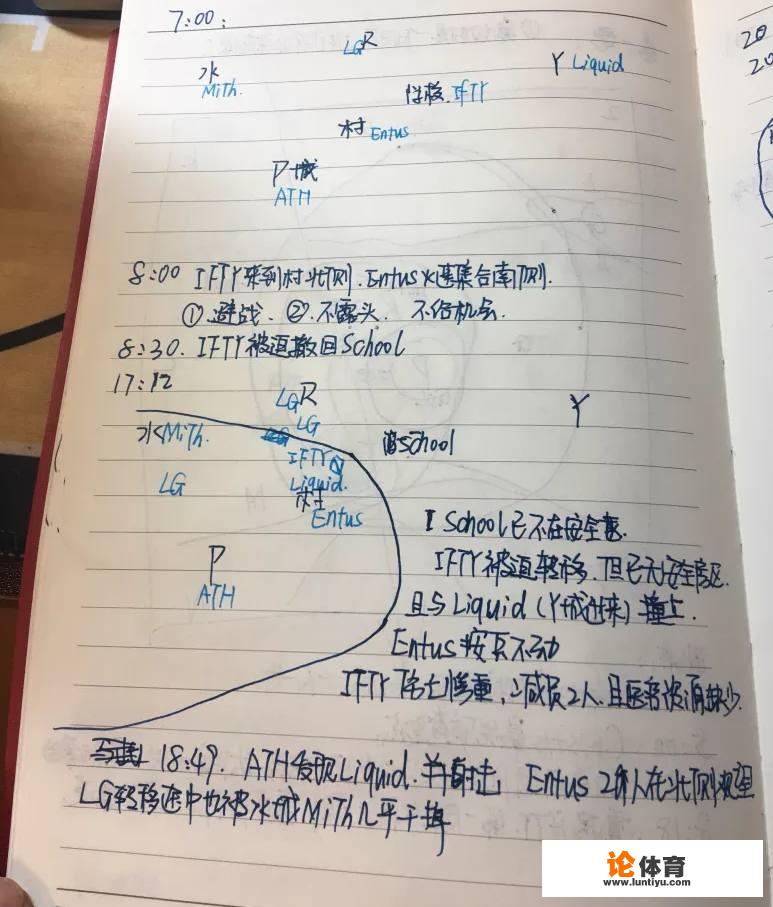 7:00:
LG R
水 Y Liquid
MiTh. 学校 IFTY
村 Entus
P城
ATH
8:00 IFTY来到村北侧. Entus 集合南侧.
① 避战. ② 不露头. 不给机会.
8:30. IFTY被逼撤回School
17:12
LG R
Y
水MiTh. LG
School
IFTY
LG Liquid.
村
Entus
I School已不在安全区.
P IFTY被迫转移.但已无安全房区.
ATH 且与Liquid(Y城过来)撞上.
Entus按兵不动
IFTY 惨重, 减员2人.且医疗资源缺少.
18:49. ATH发现Liquid.并射击. Entus 2人在北侧观望
LG转移途中也被水城MiTh几乎干掉
20
20
论体育
www.luntiyu.com